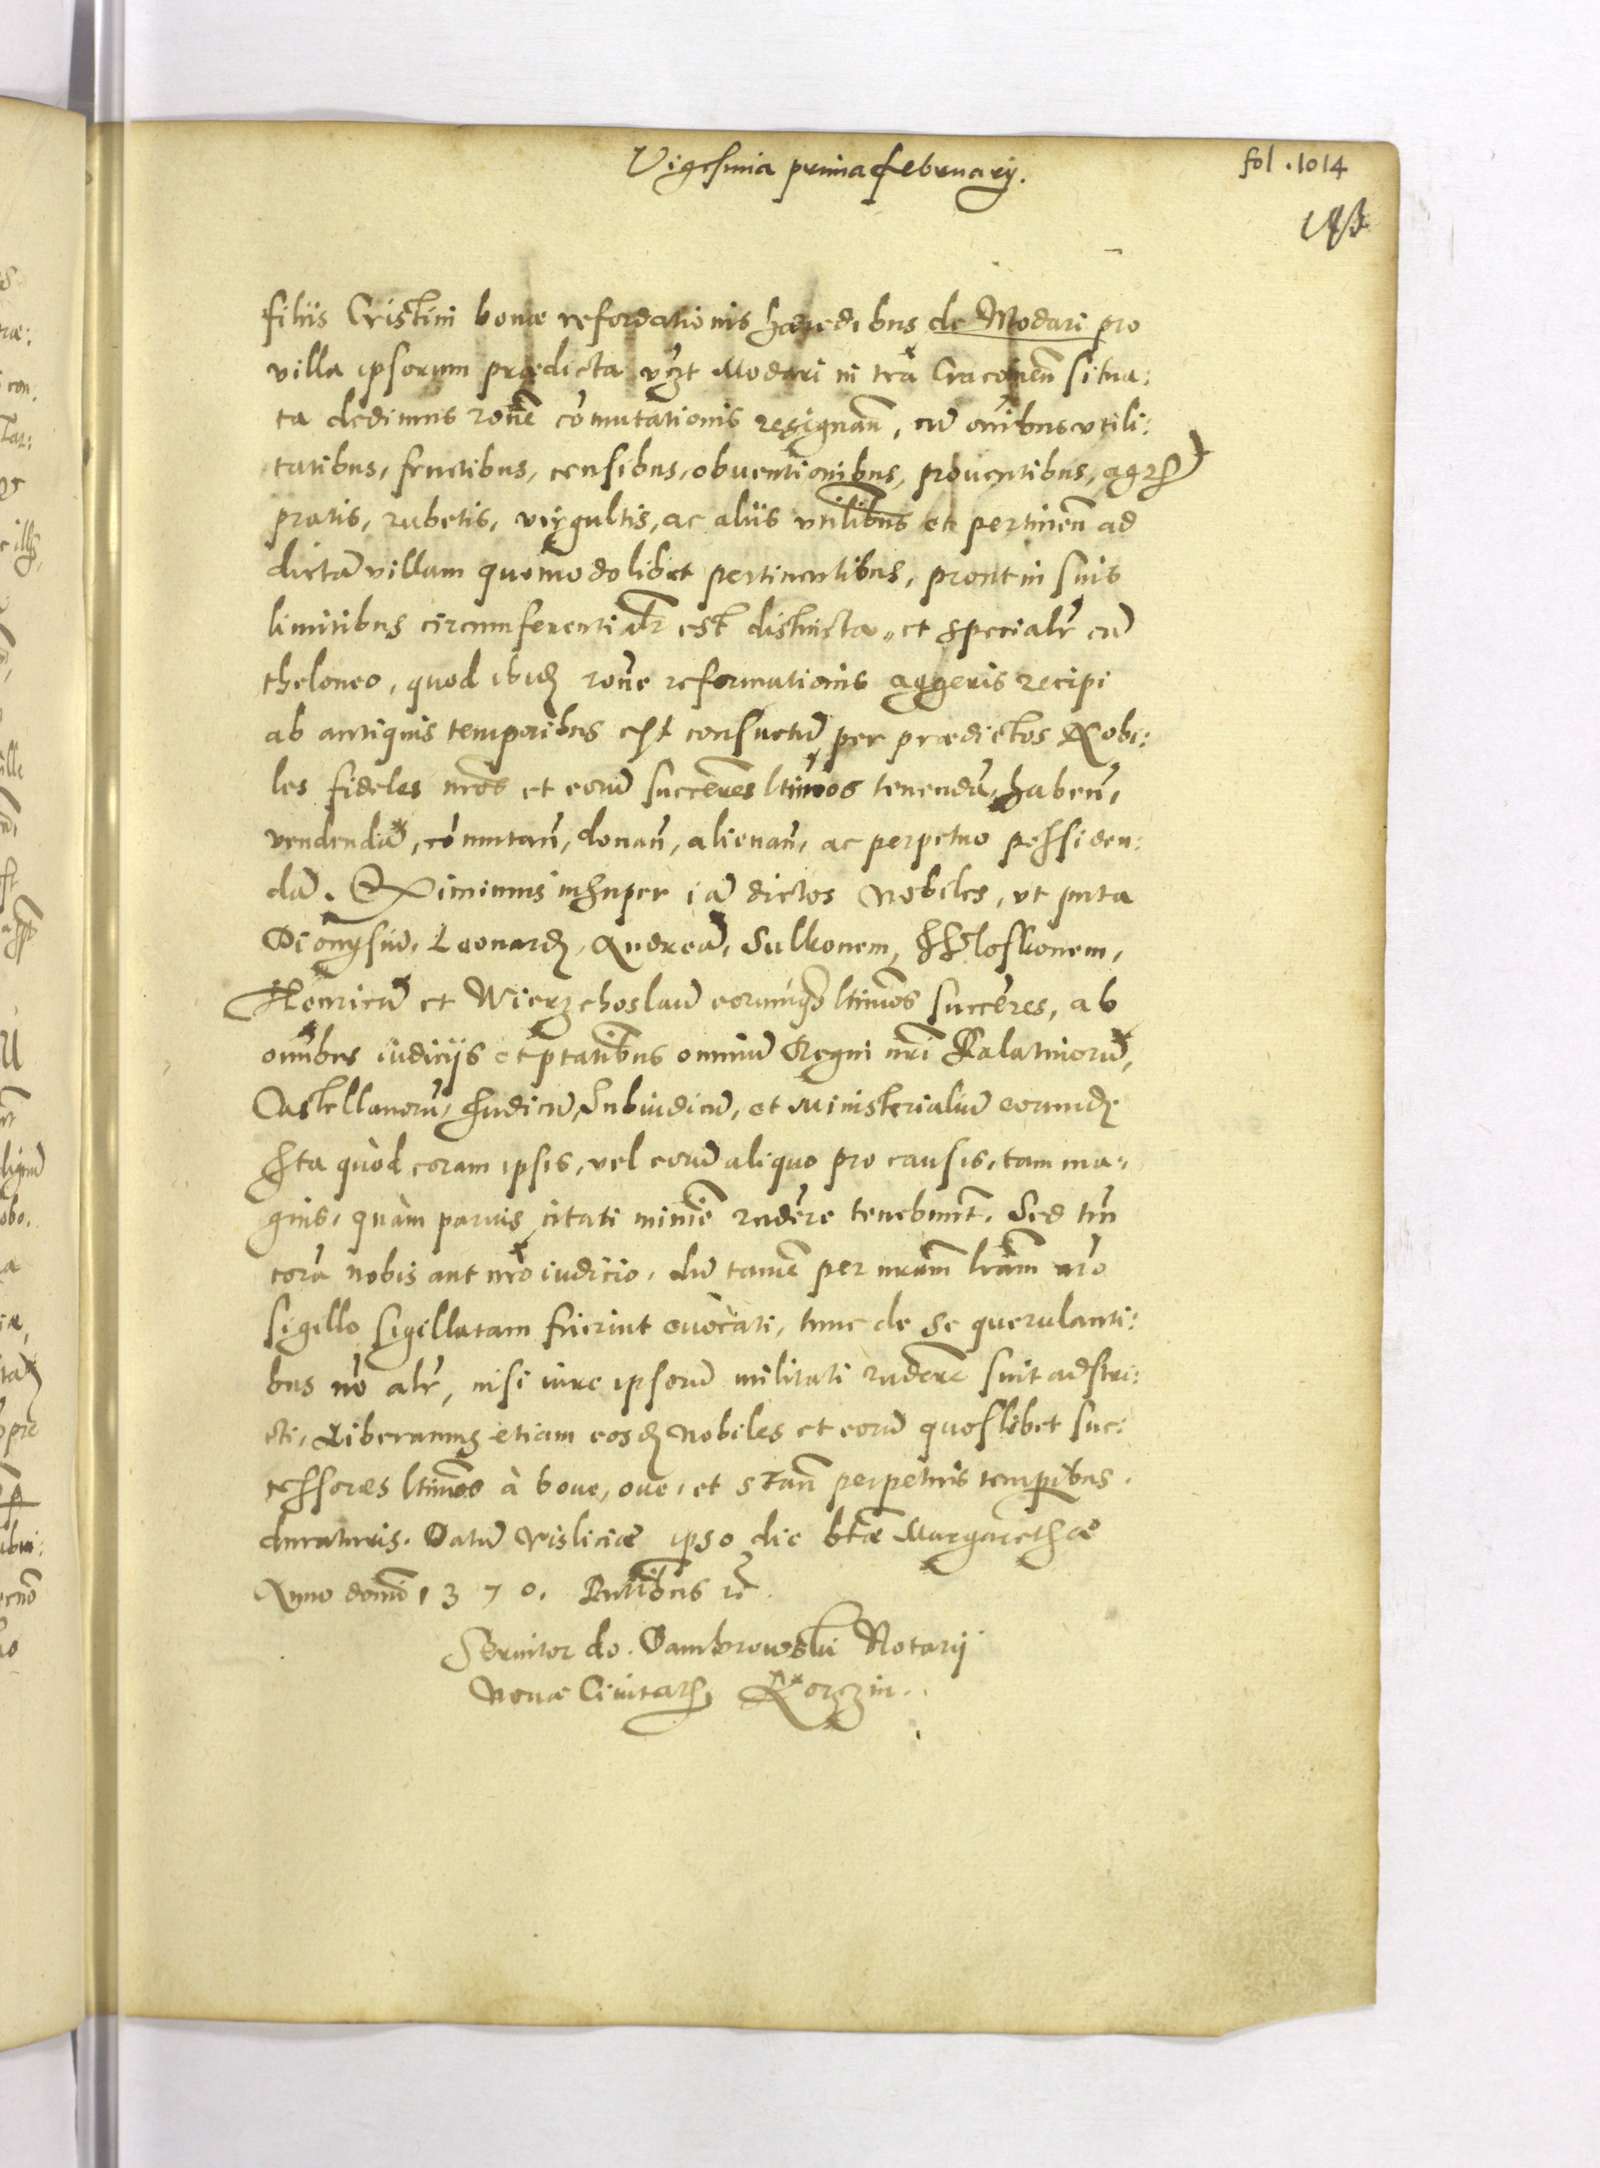 Vigesima prima february.
fol. 1014
filiis Cristini bonæ recordationis hæredibus de Modari pro
villa ipsorum prædicta vzt Modari in trā Cracovień situa:
ta dedimus ronē comutationis resignań, cū oībus vtili:
tatibus, fructibus, censibus, obuentionibus, prouentibus, agris
pratis, rubetis, virgultis, ac aliis vtilibus et pertineń ad
dictā villam quomodolibet pertinentibus, prout in suis
limitibus circumferentialr est distincta, et specialr cū
theloneo, quod ibid ronē reformationis aggeris recipi
ab antiquis temporibus est consuetū, per prædictos Nobi:
les fideles nros et eorū succēres ltimos tenendā, habeń,
vendendā, comutań, donań, alienań, ac perpetuo possiden:
dā. Eximimus insuper iā dictos Nobiles, vt puta
Dionysiū, Leonard, Andreā, Sulkonem, Floskonem,
Henricū et Wierzchoslaū eorumq ltimos succēres, ab
omibus iudicijs et ptatibus omniū Regni nri Palatinorū,
Castellanorū, Judicū, Subiudicū, et Ministerialiū eorumd
Ita quòd coram ipsis, vel eorū aliquo pro causis, tam ma:
gnis, quàm paruis citati minimē rndēre tenebunt. Sed tm
corā nobis aut nro iudicio, dū tamē per nram lram nro
sigillo sigillatam fuerint euocati, tunc de se querulanti:
bus nō alr, nisi iure ipsorū militali rndere sint adstri:
cti, Liberamus etiam eosd Nobiles et eorū quoslibet suc:
cessores ltimos à boue, oue, et stań perpetuis temporibus
duraturis. Datū Visliciæ ipso die btæ Margarethæ
Anno domi 1370. Pntibus rc.
Seruitor do. Dambrowski Notarij
Nouæ Ciuitatis Korczin.